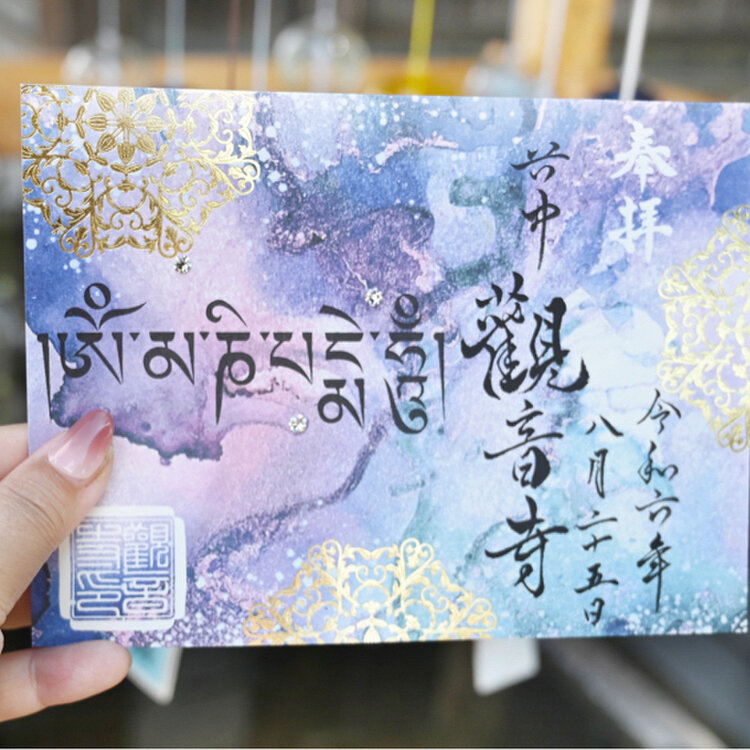 奉拝
令和六年
八月二十五日
中
觀音寺
།ཨོཾ་མ་ཎི་པ་དྨེ་ཧཱུྃ།
觀音
寺印